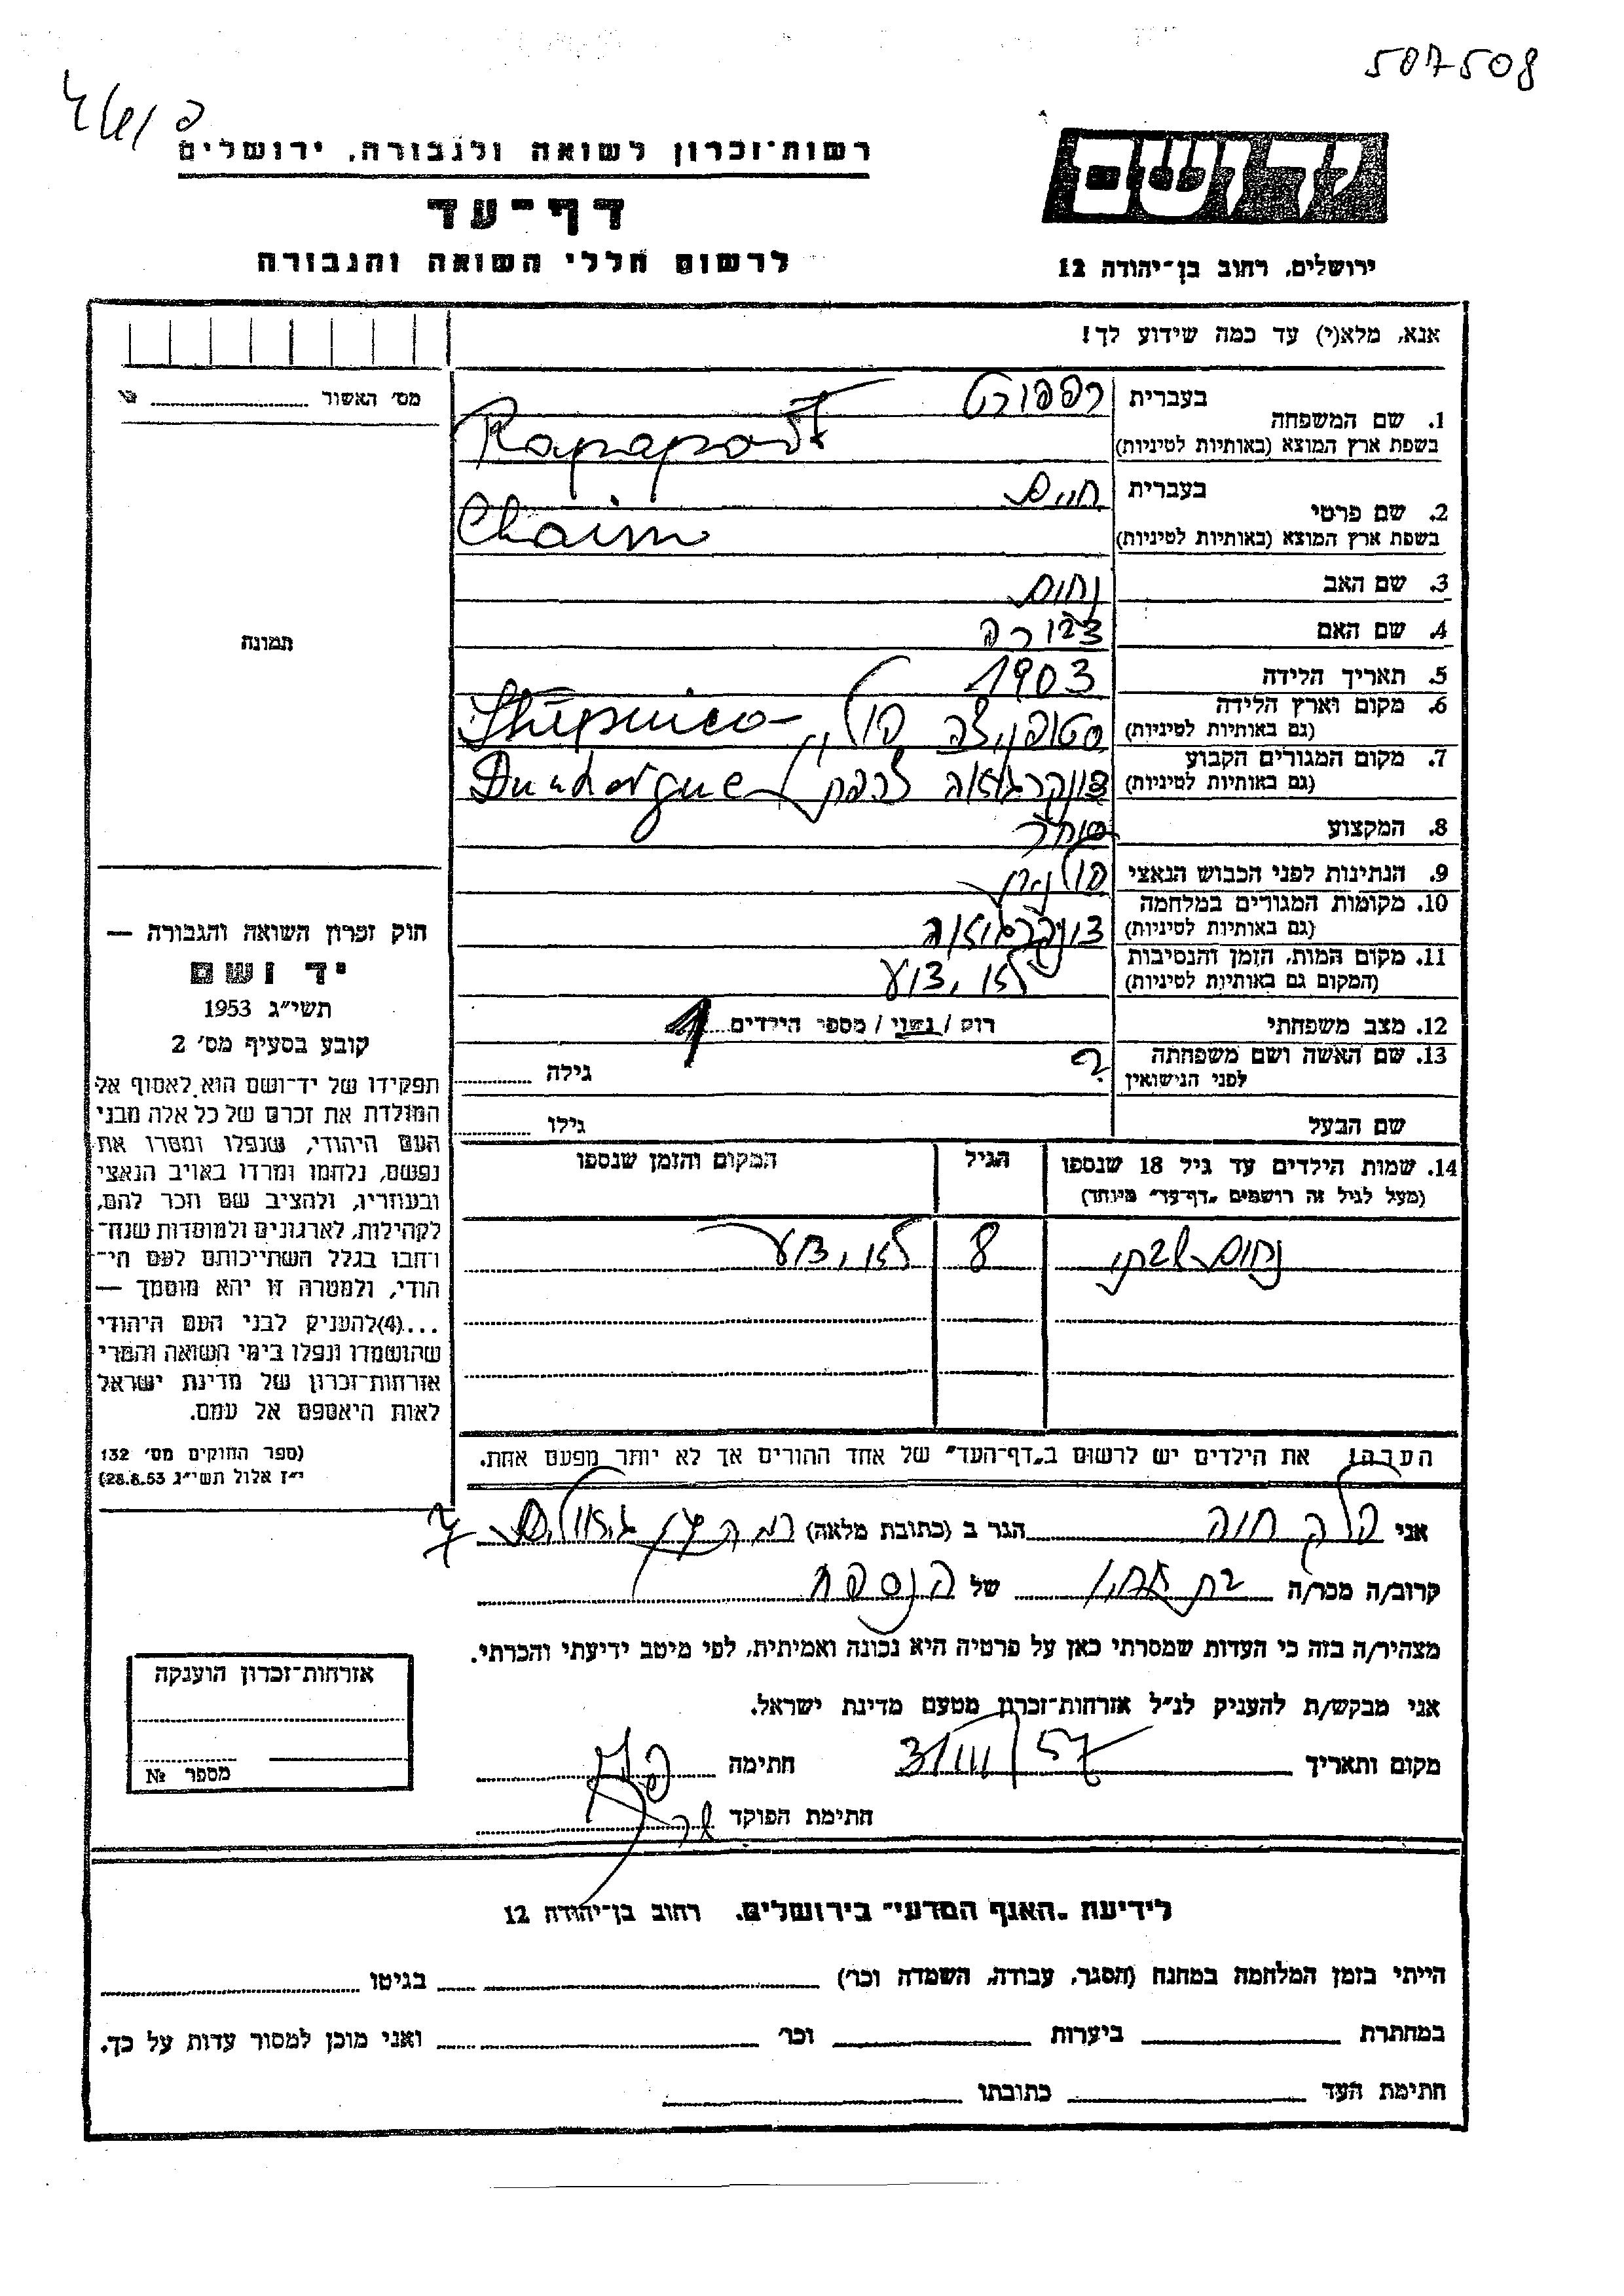 507508
רשות־זכרון לשואה ולגבורה, ירושלים
דף־עד
לרשום חללי השואה והגבורה
יד ושם
ירושלים, רחוב בן־יהודה 12
אנא, מלא(י) עד כמה שידוע לך!
מס׳ האשור
תמונה
1. שם המשפחה בעברית רפפורט
בשפת ארץ המוצא (באותיות לטיניות) Rapaport
2. שם פרטי בעברית חיים
בשפת ארץ המוצא (באותיות לטיניות) Chaim
3. שם האב נחום
4. שם האם
5. תאריך הלידה 1903
6. מקום וארץ הלידה
(גם באותיות לטיניות)
7. מקום המגורים הקבוע
(גם באותיות לטיניות)
8. המקצוע סוחר
9. הנתינות לפני הכבוש הנאצי
10. מקומות המגורים במלחמה
(גם באותיות לטיניות)
11. מקום המות, הזמן והנסיבות לא ידוע
(המקום גם באותיות לטיניות)
12. מצב משפחתי רוק / נשוי / מספר הילדים 1
13. שם האשה ושם משפחתה ? גילה
לפני הנישואין
שם הבעל גילו
14. שמות הילדים עד גיל 18 שנספו הגיל המקום והזמן שנספו
(מעל לגיל זה רושמים „דף־עד״ מיוחד)
נחום 8 לא ידוע
הערה! את הילדים יש לרשום ב„דף־העד״ של אחד ההורים אך לא יותר מפעם אחת.
חוק זכרון השואה והגבורה —
יד ושם
תשי״ג 1953
קובע בסעיף מס׳ 2
תפקידו של יד־ושם הוא לאסוף אל
המולדת את זכרם של כל אלה מבני
העם היהודי, שנפלו ומסרו את
נפשם, נלחמו ומרדו באויב הנאצי
ובעוזריו, ולהציב שם וזכר להם,
לקהילות, לארגונים ולמוסדות שנח־
רחבו בגלל השתייכותם לעם הי־
הודי, ולמטרה זו יהא מוסמך —
...(4)להעניק לבני העם היהודי
שהושמדו ונפלו בימי השואה והמרי
אזרחות־זכרון של מדינת ישראל
לאות היאספם אל עמם.
(ספר החוקים מס׳ 132
י״ז אלול תשי״ג 28.8.53)
אני פלק חוה הגר ב (כתובת מלאה)
קרוב/ה מכר/ה בת אחיו של הנספה
מצהיר/ה בזה כי העדות שמסרתי כאן על פרטיה היא נכונה ואמיתית, לפי מיטב ידיעתי והכרתי.
אני מבקש/ת להעניק לנ״ל אזרחות־זכרון מטעם מדינת ישראל.
מקום ותאריך 31/III/57 חתימה
חתימת הפוקד
אזרחות־זכרון הוענקה
מספר №
לידיעת „האגף המדעי״ בירושלים, רחוב בן־יהודה 12
הייתי בזמן המלחמה במחנה (הסגר, עבודה, השמדה וכר׳) בגיטו
במחתרת ביערות וכר׳ ואני מוכן למסור עדות על כך.
חתימת העד כתובתו